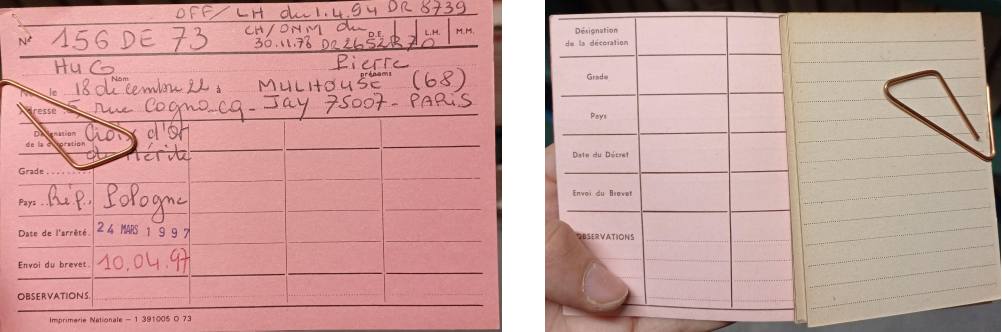 OFF/LH du 1.4.94 DR 8739
N° 156 DE 73 CH/ONM du D.E. L.H. M.M.
30.11.78 DR 2652R70
HUG Pierre
Nom prénoms
Né le 18 décembre 21 à MULHOUSE (68)
Adresse 5, rue Cognacq-Jay 75007-PARIS
Désignation de la décoration Croix d'Or
du Mérite
Grade
Pays Rép. Pologne
Date de l'arrêté. 24 MARS 1997
Envoi du brevet. 10.04.97
OBSERVATIONS.
Imprimerie Nationale – 1 391005 O 73
Désignation
de la décoration
Grade
Pays
Date du Décret
Envoi du Brevet
OBSERVATIONS